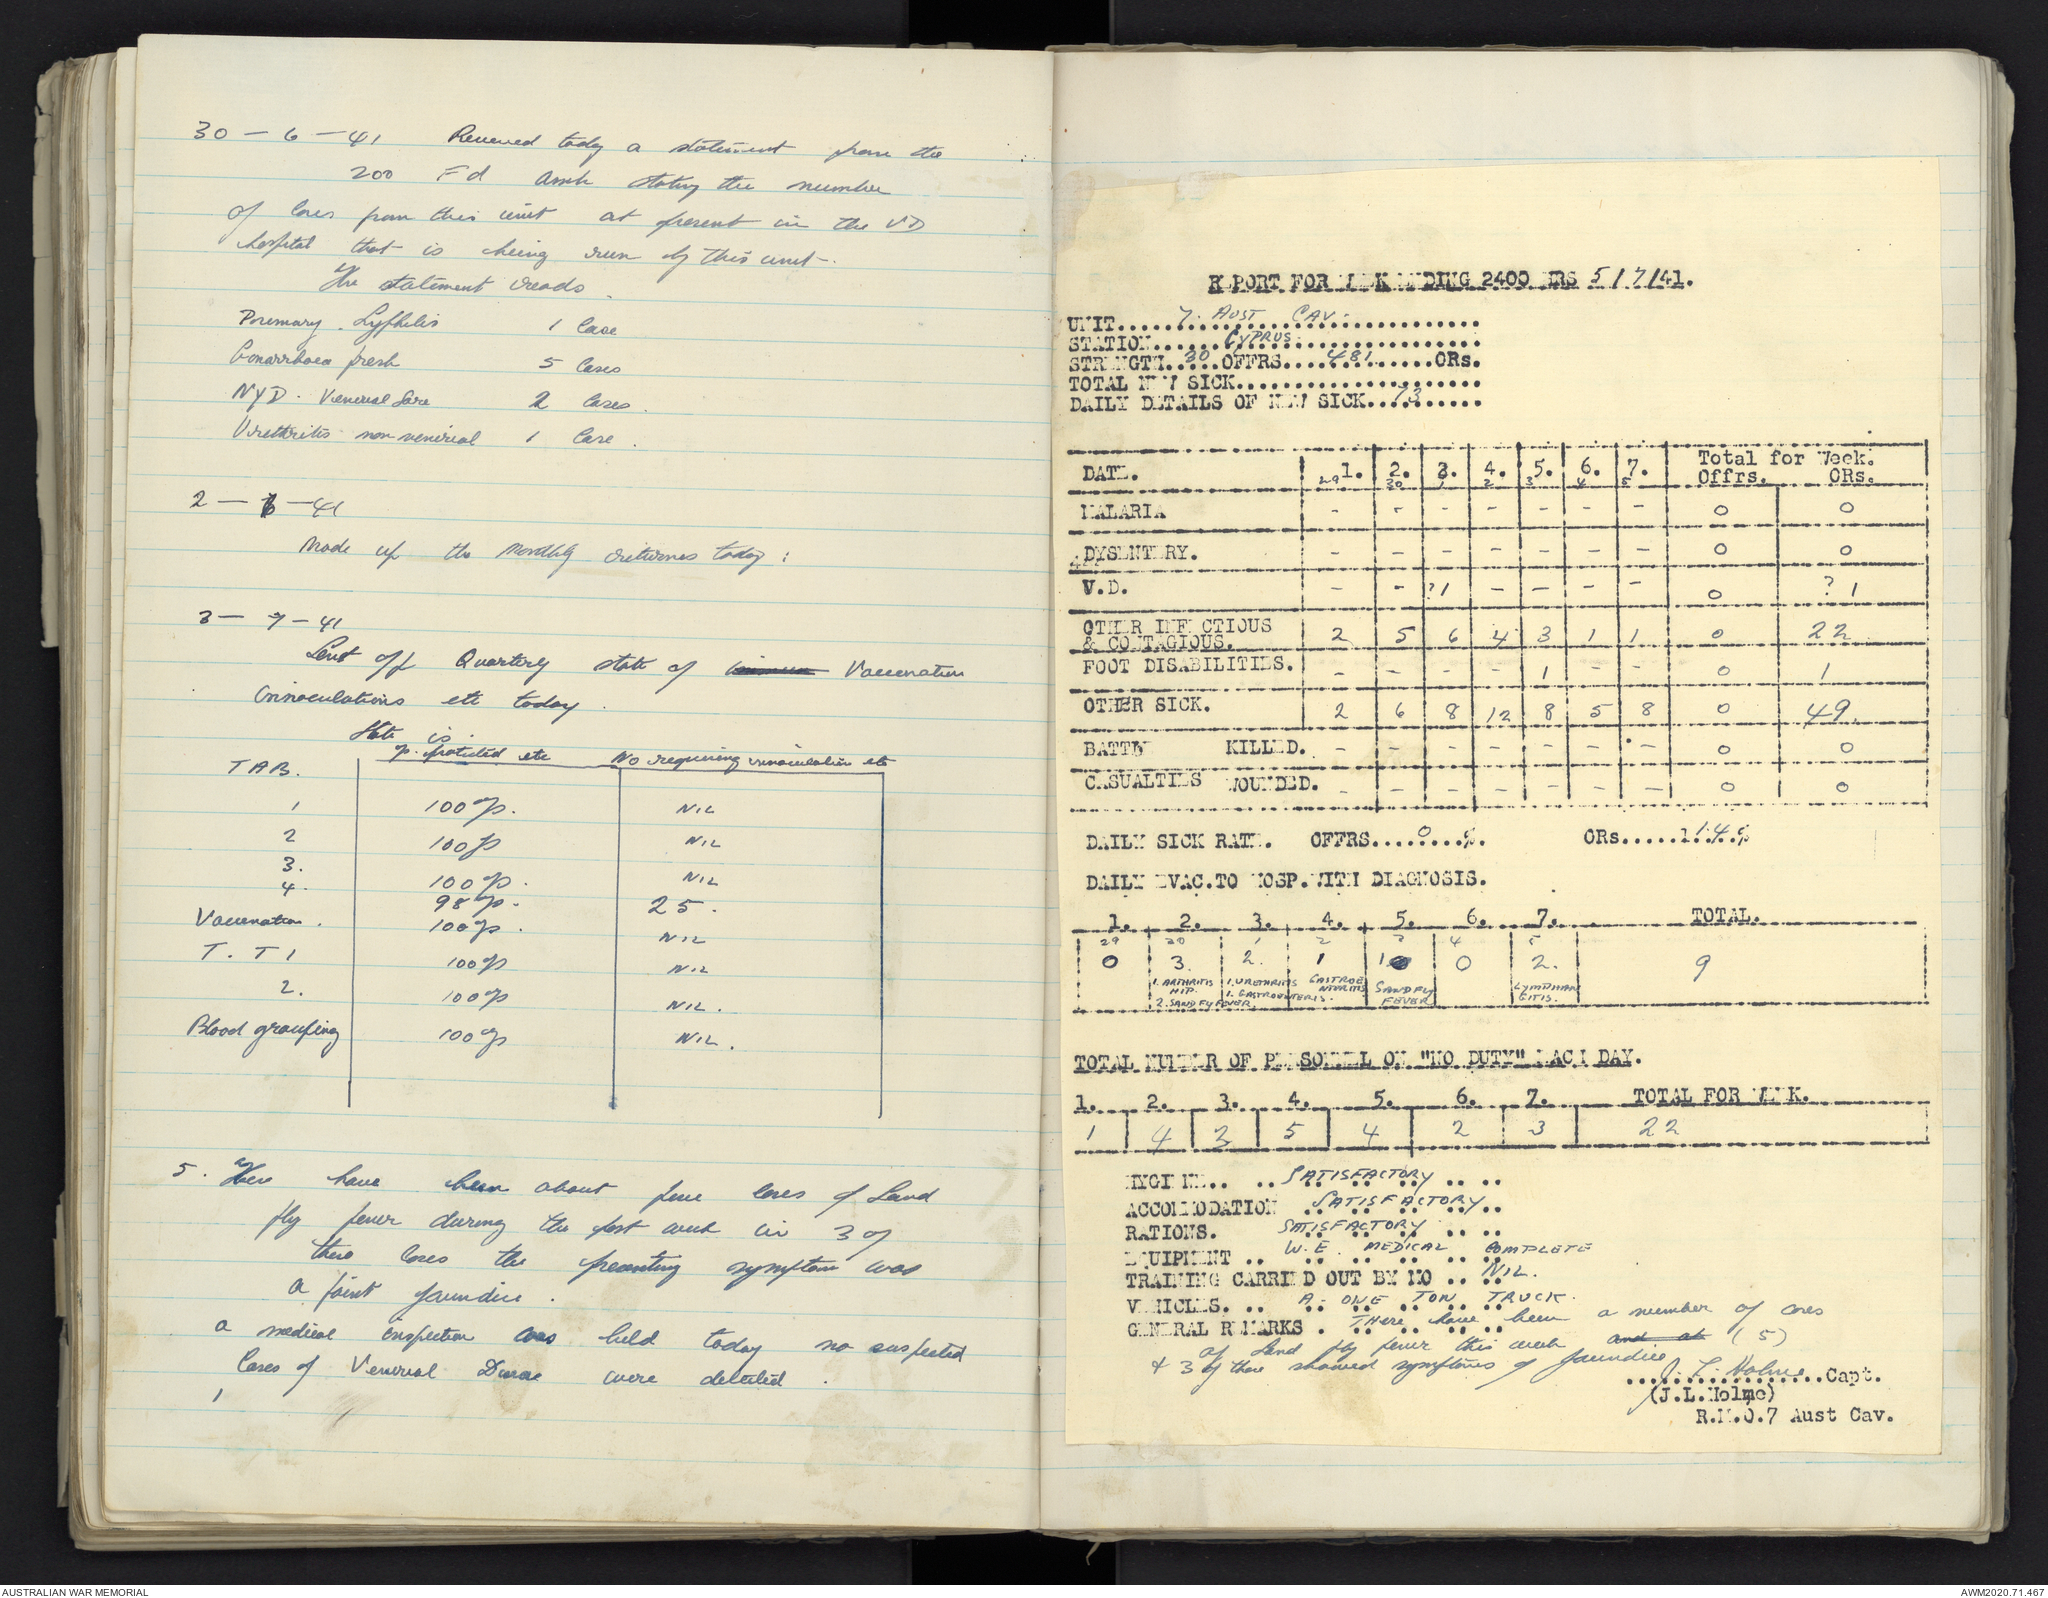 30 - 6 - 41 Received today a statement from the
200 Fd Amb stating the number
of cases from this unit at present in the VD
hospital that is being run by this unit.
The statement reads
Primary Syphilis 1 Case
Gonarrhoea fresh 5 Cases
NYD. Venereal Sore 2 Cases.
Urethritis non venereal 1 Case.
2 - 7 - 41
Made up the monthly returnes today:
3 - 7 - 41
Sent off Quarterly state of Vaccenation
Innoculations etc today.
State is.
% protected etc No requiring innoculation etc
TAB.
1 100%. NIL
2 100% NIL
3. 100%. NIL
4. 98%. 25.
Vaccenation. 100%. NIL
T. T 1 100% NIL
2. 100% NIL.
Blood grouping 100% NIL.
5. There have been about five cases of Sand
fly fever during the past week in 3 of
these cases the presenting symptom was
a faint jaundice.
A medical inspection was held today no suspected
Cases of Venereal Disease were detected.
REPORT FOR WEEK ENDING 2400 HRS 5/7/41.
UNIT.....7. AUST CAV.....
STATION.....CYPRUS.....
STRENGTH.....30..OFFRS....481......ORs.
TOTAL NEW SICK.....................
DAILY DETAILS OF NEW SICK...73.....
DATE. 1. 2. 3. 4. 5. 6. 7. Total for Week.
29 30 1 2 3 4 5 Offrs. ORs.
MALARIA - - - - - - - 0 0
DYSENTERY. - - - - - - - 0 0
V.D. - - ?1 - - - - 0 ? 1
OTHER INFECTIOUS
& CONTAGIOUS. 2 5 6 4 3 1 1 0 22
FOOT DISABILITIES. - - - - 1 - - 0 1
OTHER SICK. 2 6 8 12 8 5 8 0 49.
BATTLE KILLED. - - - - - - - 0 0
CASUALTIES WOUNDED. - - - - - - - 0 0
DAILY SICK RATE. OFFRS....0...%. ORs.....1.4.%
DAILY EVAC.TO HOSP.WITH DIAGNOSIS.
1. 2. 3. 4. 5. 6. 7. TOTAL.
29 30 1 2 3 4 5
0 3. 2. 1 1 0 2. 9
1. ARTHRITIS HIP. 2. SANDFLY FEVER
1. URETHRITIS 1. GASTROENTERIS.
GASTROE NTERITIS
SANDFLY FEVER
LYMPHAN GITIS.
TOTAL NUMBER OF PERSONNEL ON "NO DUTY" EACH DAY.
1. 2. 3. 4. 5. 6. 7. TOTAL FOR WEEK.
1 4 3 5 4 2 3 22
HYGIENE.. .. SATISFACTORY .. ..
ACCOMMODATION SATISFACTORY..
RATIONS. SATISFACTORY .. ..
EQUIPMENT .. W.E. MEDICAL COMPLETE
TRAINING CARRIED OUT BY MO .. NIL.
VEHICLES. .. A. ONE TON TRUCK.
GENERAL REMARKS . There have been a number of cases
of Sand fly fever this week and at (5)
& 3 of these showed symptoms of jaundice
J. L. Holme......Capt.
(J.L.Holme)
R.M.O.7 Aust Cav.
AUSTRALIAN WAR MEMORIAL
AWM2020.71.467